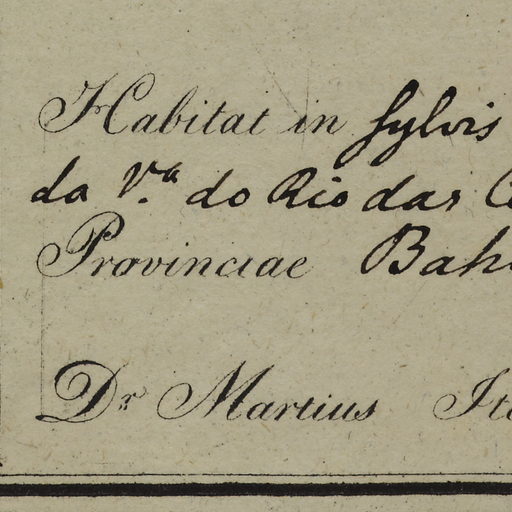 Habitat in sylvis
da V.ª do Rio das
Provinciae
Dr Martius